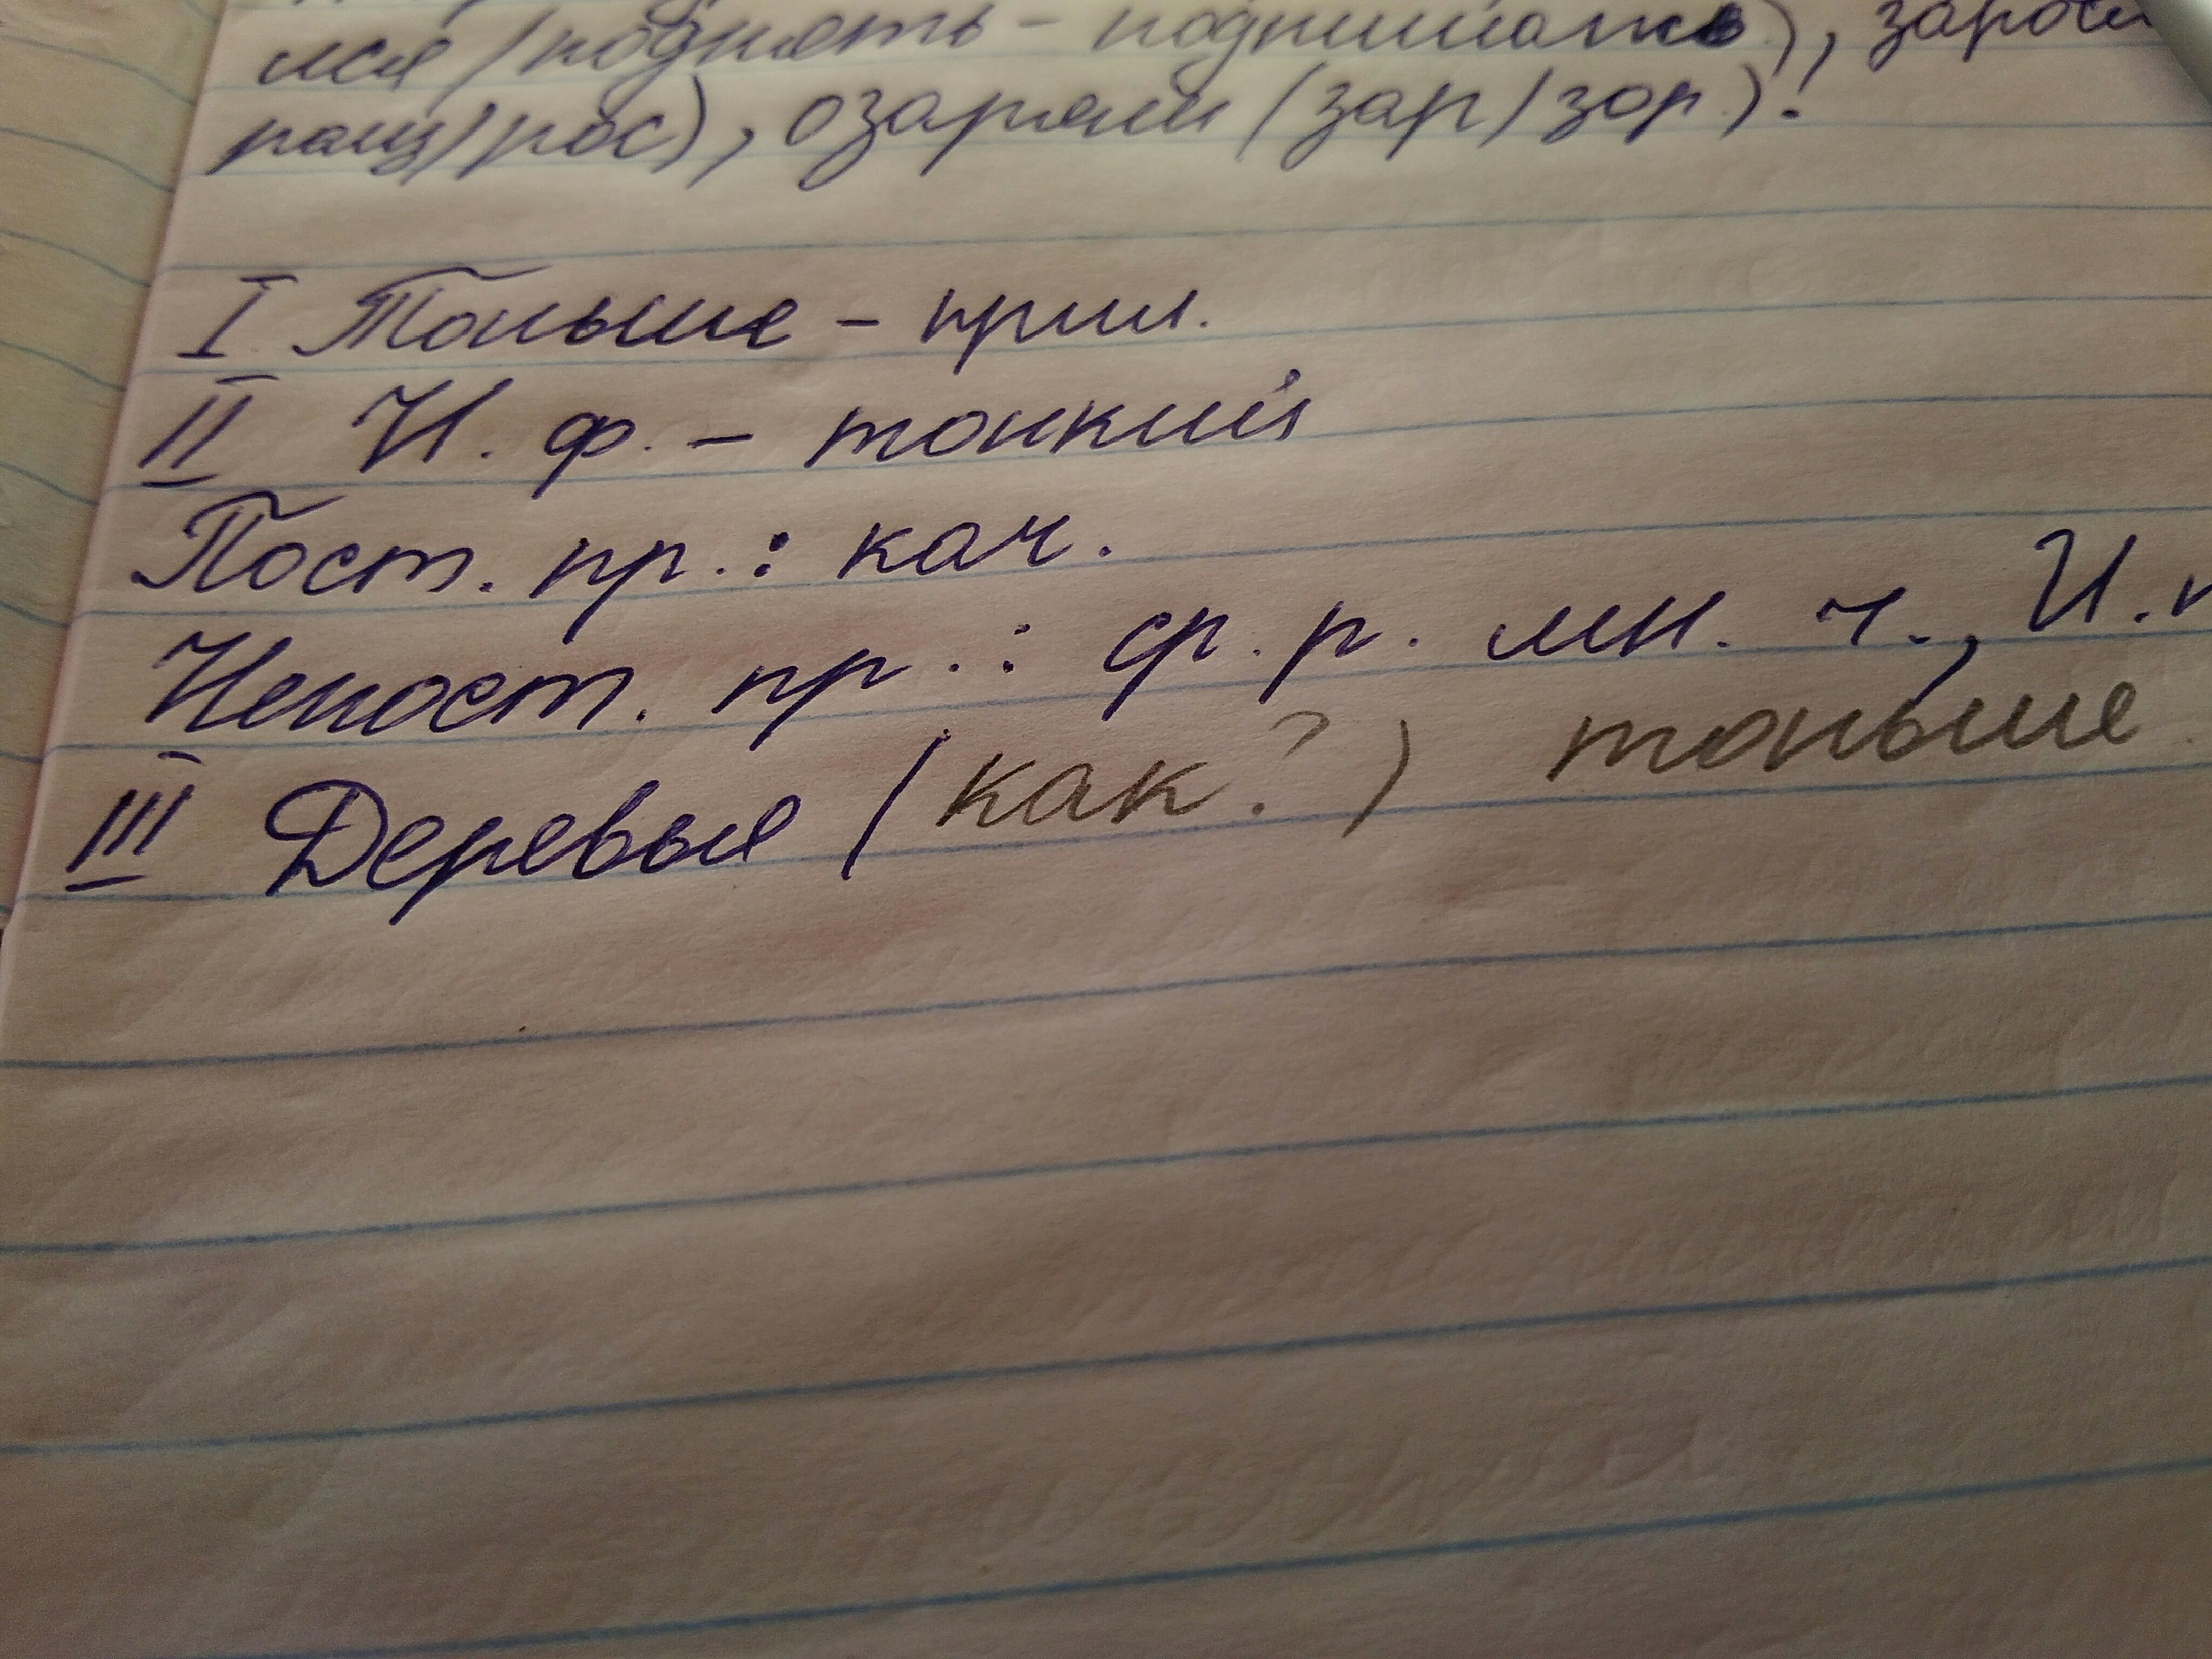 лся (поднять - поднимать), зарос
ращ/рос), озаряли (зар/зор)!
I Тоньше - прил.
II Н. ф. - тонкий
Пост. пр.: кач.
Непост. пр.: ср. р. мн. ч., И.
III Деревья (как?) тоньше